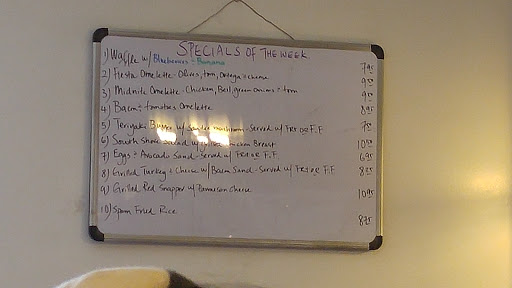 SPECIALS OF THE WEEK
1) Waffle w/ Blueberries + Banana 7.95
2) Fiesta Omelette - Olives, tom, Ortega + cheese 9.50
3) Midnite Omelette - Chicken, Bell, green onions + tom 9.50
4) Bacon + tomatoes Omelette 8.95
5) Teriyaki Burger w/ mushroom - Served w/ FRT OR F.F
6) South Salad w/ Chicken Breast 10.50
7) Eggs + Avocado Sand - Served w/ FRT OR F.F 6.95
8) Grilled Turkey + Cheese w/ Bacon Sand - Served w/ FRT OR F.F 8.25
9) Grilled Red Snapper w/ Parmesan Cheese 10.95
10) Spam Fried Rice 8.75